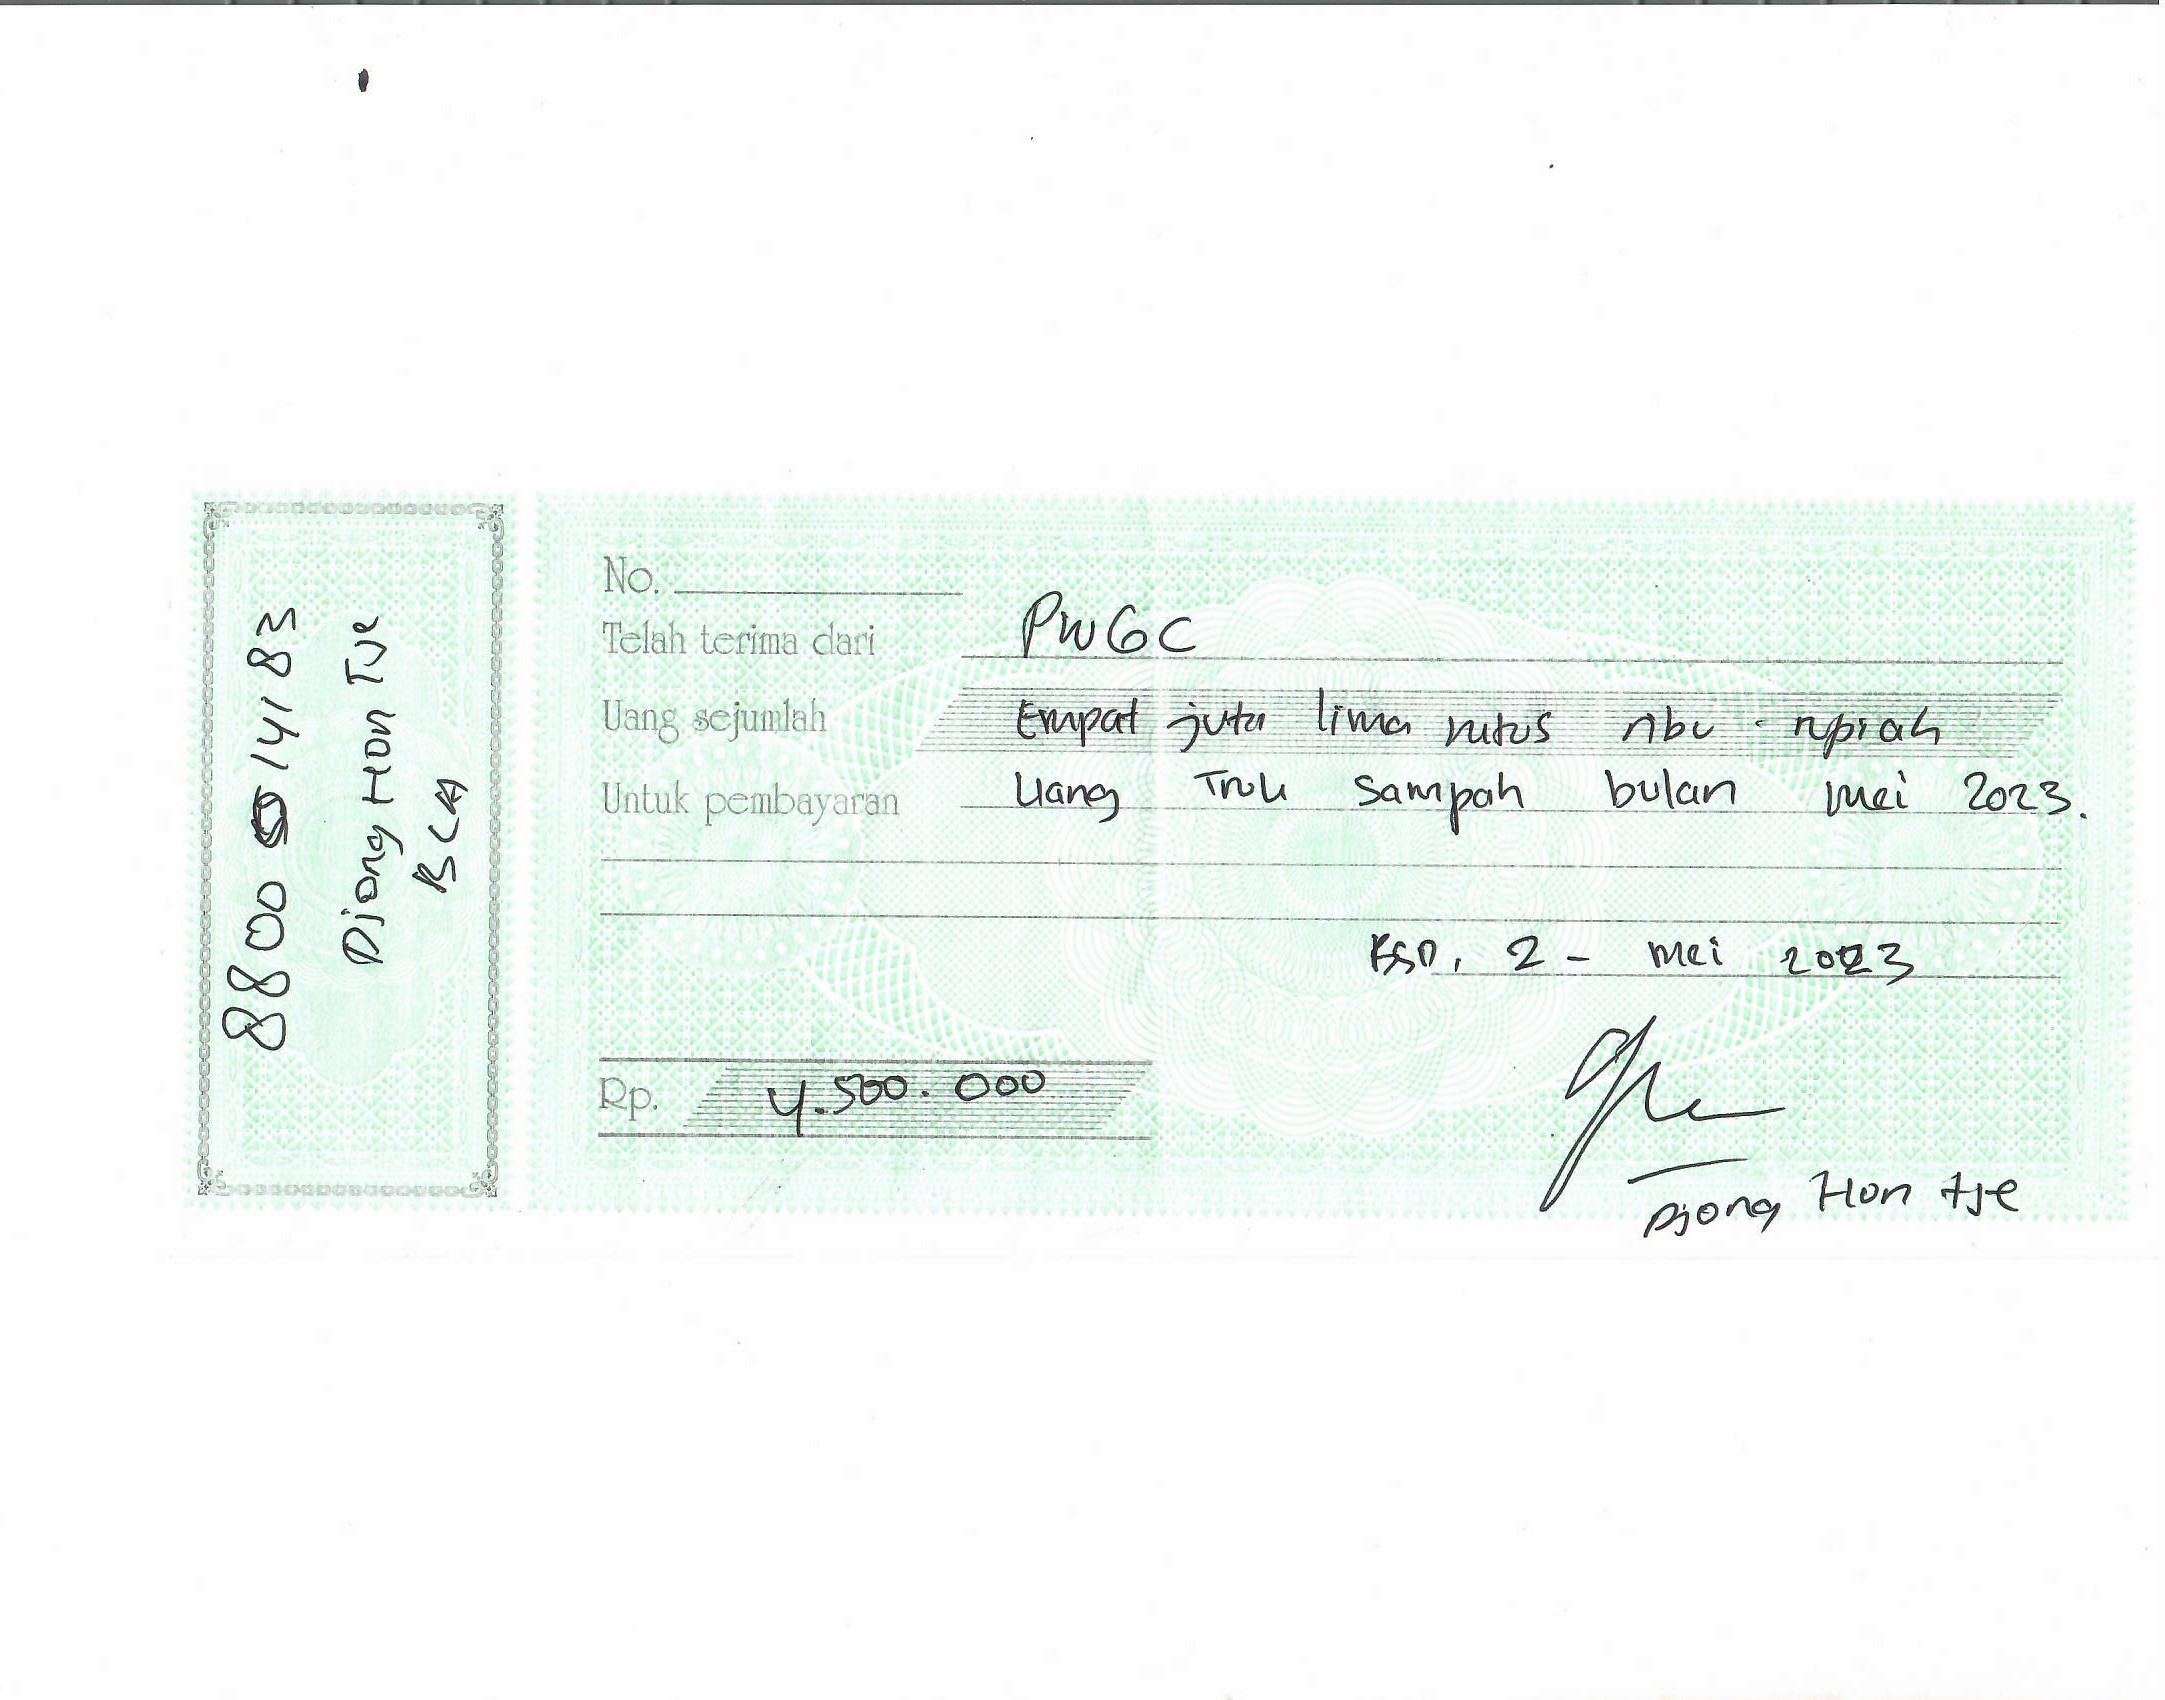 8800 5 14183
Djong Hon Tje
BCA
No.
Telah terima dari PWGC
Uang sejumlah Empat juta lima ratus ribu rupiah
Untuk pembayaran Uang Truk Sampah bulan mei 2023.
BSD, 2 - mei 2023
Rp. 4.500.000
Djong Hon tje